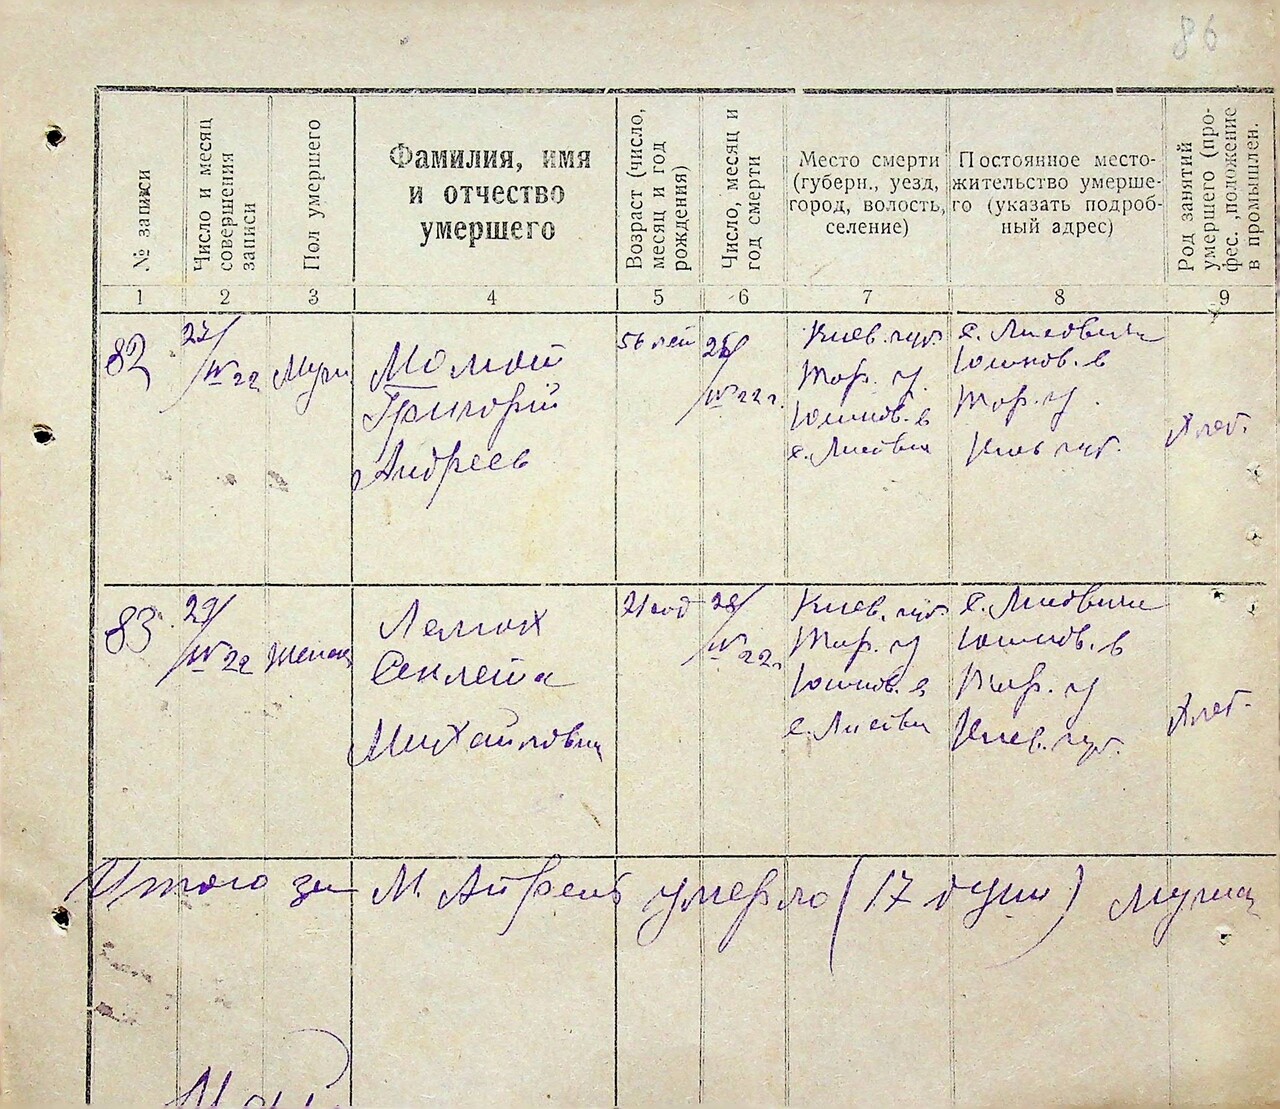 86
№ записи
Число и месяц совершения записи
Пол умершего
Фамилия, имя
и отчество
умершего
Возраст (число, месяц и год рождения)
Число, месяц и год смерти
Место смерти
(губерн., уезд,
город, волость,
селение)
Постоянное место-
жительство умерше-
го (указать подроб-
ный адрес)
Род занятий умершего (про-
фес., положение в промышлен.
1 2 3 4 5 6 7 8 9
82
IV 22
Мужч
Момот
Григорий
Андреев
56 лет
IV 22 г.
Киев. губ
Тар. у.
Юшков. в
с. Лисович
с. Лисовичи
Юшков. в
Тар. у.
Киев губ.
Хлеб.
83
29/IV 22
Женск
Секлета
Михайловна
21 год
28/IV 22.
Киев. губ.
Тар. у
Юшков. в
с. Лисович
с. Лисовичи
Юшков. в
Тар. у
Киев. губ.
Хлеб.
Итого за М. Апрель умерло (17 душ) мужч